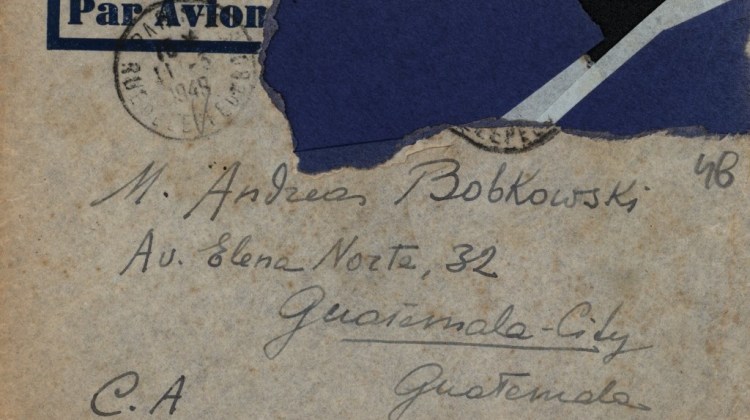 Par Avion
PAR
1949
M. Andreas Bobkowski
4B
Av. Elena Norte, 32
Guatemala-City
C.A
Guatemala